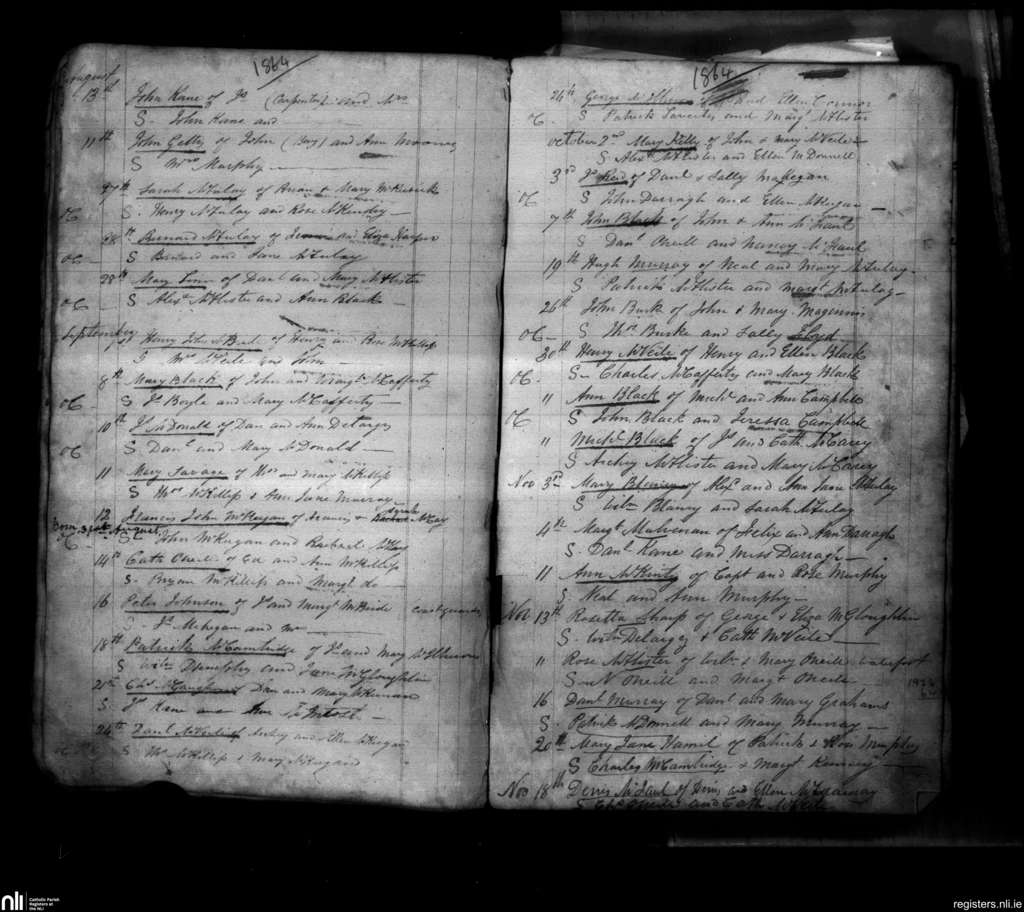 1864
August
13th John Kane of Js (Carpenter) and Mrs
S. John Kane and
11th John Getty of John (Boy) and Ann Mooney
S Mrs Murphy
27th Sarah McAulay of Brian & Mary McKillop
OC S. Henry McAulay and Rose McKinley
28th Bernard McAulay of and Eliza Harper
OC S Bernard and Jane McAulay
28th Mary Linn of Danl and Mary McAlister
OC S Alexr McAlister and Ann Black
September
1st Henry John McNeill of Henry and Rose McKillop
S Mrs McNeile and John
8th Mary Black of John and Margt McCafferty
OC S Js Boyle and Mary McCafferty
10th Js McDonald of Dan and Ann Delargy
OC S Danl and Mary McDonald
11 Mary Savage of Wm and Mary McKillop
S McKillop & Ann Jane Murray
12 Francis John McKeegan of Francis & Sarah McCay
Born 31st August
OC S John McKeegan and Rachael McKay
14th Cath Oneile of and Ann McKillop
S. Bryan McKillop and Margt do
16 Peter Johnson of Js and Margt McBride coastguards
S. Js Mehegan and Mrs
18th Patrick McCambridge of Js and Mary
S Wilm Dunphy and Jane McGloughlin
21st of Dan and Mary McKiernan
S. Js Kane and McIntosh
24th Danl McNeile of Archy and Ellen McKeegan
OC S McKillop & Mary McKeegan
1864
26th George and Ellen Connor
OC S Patrick and Margt McAlister
October 2nd Mary Kelly of John & Mary McNeile
S Alexr McAlister and Ellen McDonnell
3rd Js of Danl & Sally Makegan
OC S John Darragh and Ellen McKeegan
7th John Black of John & Ann McFaul
S Danl Oneill and Nancy McFaul
19th Hugh Murray of Neal and Mary McAulay
S Patrick McAlister and Margt McAulay
26th John Burk of John & Mary Magennis
OC S Burke and Sally Lloyd
30th Henry McNeile of Henry and Ellen Black
OC S Charles McCafferty and Mary Black
11 Ann Black of Michl and Ann Campbell
OC S John Black and Teressa Campbell
11 Michl Black of Js and Cath McCarey
S Archey McAlister and Mary McCarey
Nov 3rd Mary Blaney of Alexr and Ann Jane McAulay
S Wilm Blaney and Sarah McAulay
4th Margt Mulvenan of Felix and Ann Darragh
S. Danl Kane and Miss Darragh
11 Ann McKinty of Capt and Rose Murphy
S. Neal and Ann Murphy
Nov 13th Rosetta Sharp of George & Eliza McGloughlin
S. Wilm Delargey & Cath McNeile
11 Rose McAlister of Wilm & Mary Oneill Waterfoot
S N Oneill and Margt Oneile
16 Danl Murray of Danl and Mary Grahams
S. Patrick McDonnell and Mary Murray
20th Mary Jane Hamil of Patrick & Rose Murphy
S Charles McCambridge & Margt
Nov 18th Denis McFaul of Denis and Ellen
S Oneile and Cath McNeile
nli Catholic Parish Registers at the NLI
registers.nli.ie